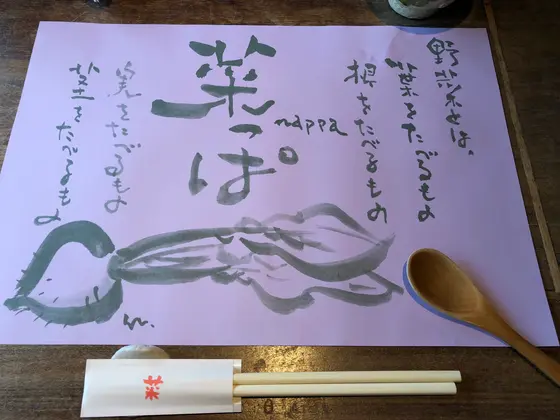 野菜とは、
葉をたべるもの
根をたべるもの
菜っぱ
nappa
実をたべるもの
茎をたべるもの
菜